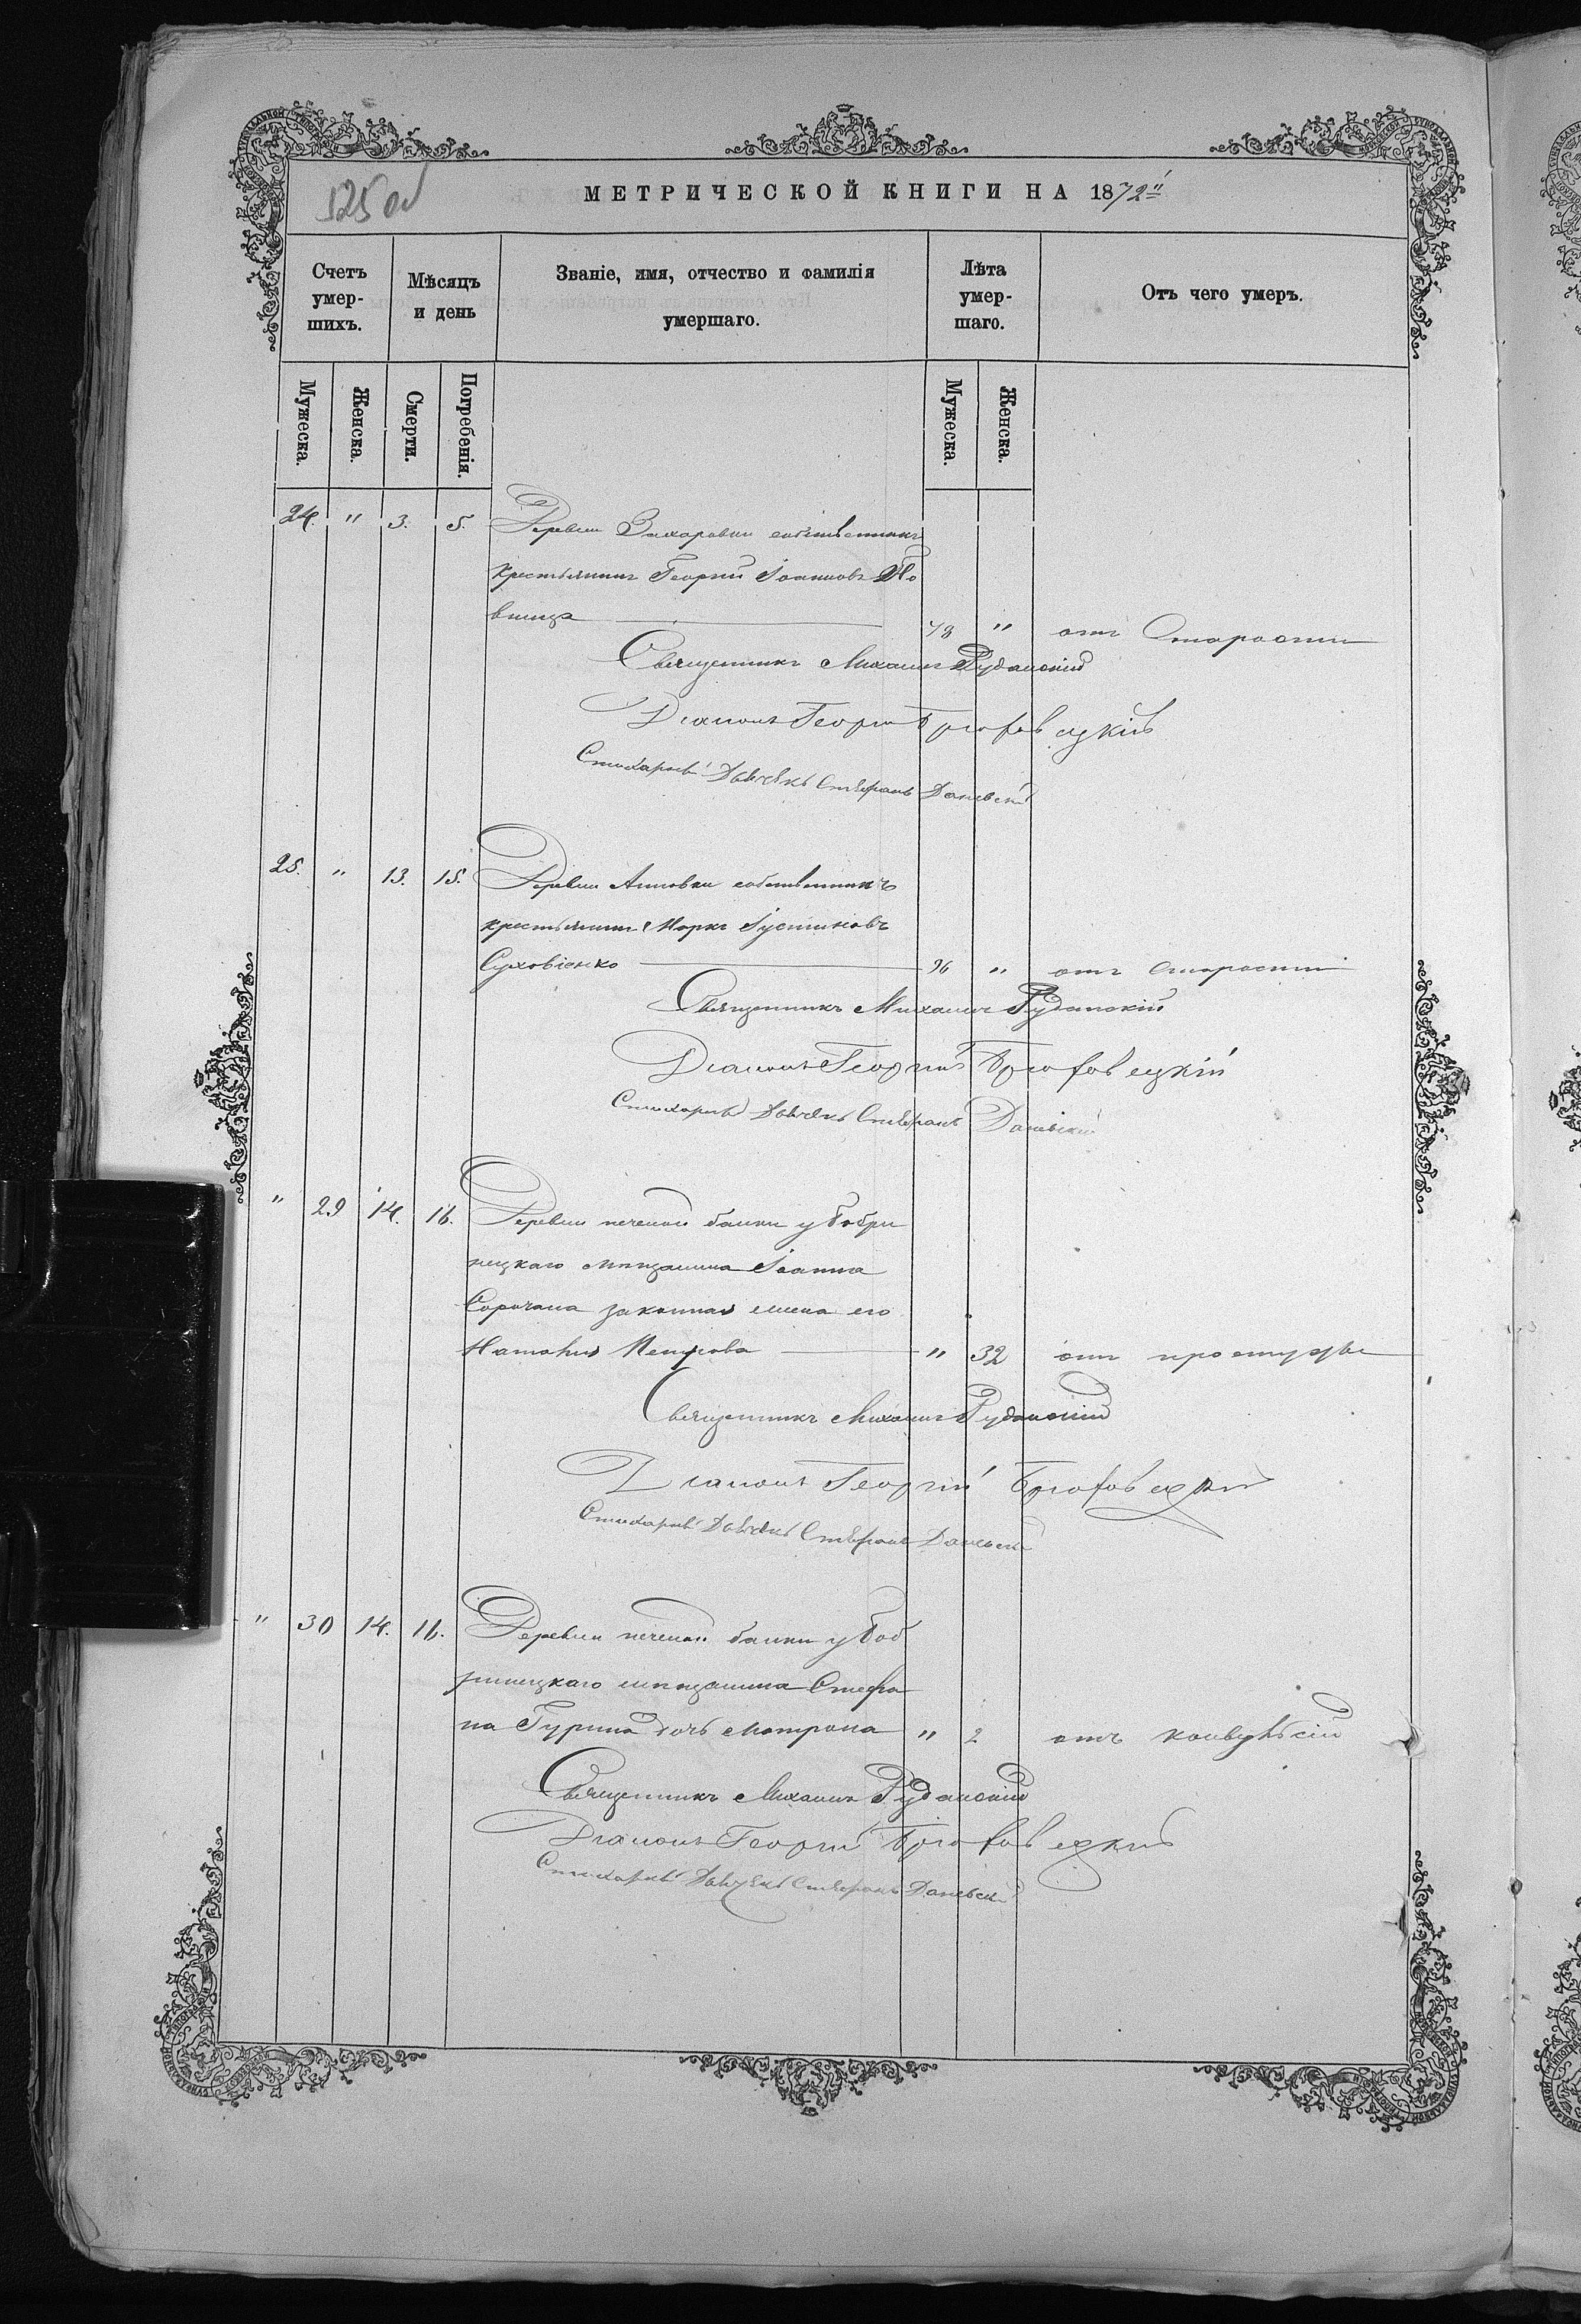 125 об
МЕТРИЧЕСКОЙ КНИГИ НА 1872й
Счетъ умер-шихъ.
Мѣсяцъ и день
Званіе, имя, отчество и фамилія умершаго.
Лѣта умер-шаго.
Отъ чего умеръ.
Мужеска.
Женска.
Смерти.
Погребенія.
Мужеска.
Женска.
24. " 3. 5. Деревни Захаровки собственникъ
крестьянинъ Георгій Іоанновъ
вница 78 " отъ Старости
Священникъ Михаилъ Руданскій
Діаконъ Георгій Брофовецкій
Стихарный Дьячекъ Стефанъ Даневскій
25. " 13. 15. Деревни Анновки собственникъ
крестьянинъ Маркъ Іустиновъ
Суховіенко 96 " отъ старости
Священникъ Михаилъ Руданскій
Діаконъ Георгій Брофовецкій
Стихарный Дьячекъ Стефанъ Даневскій
" 29 14. 16. Деревни балки у Бобри
нецкаго мѣщанина Іоанна
Сорочана законная жена его
Наталія Петрова " 32 отъ простуды
Священникъ Михаилъ Руданскій
Діаконъ Георгій Брофовецкій
Стихарный Дьячекъ Стефанъ Даневскій
" 30 14. 16. Деревни балки у Боб
ринецкаго мѣщанина Стефа
на Гурина дочь Матрона " 2 отъ конвульсій
Священникъ Михаилъ Руданскій
Діаконъ Георгій Брофовецкій
Стихарный Дьячекъ Стефанъ Даневскій